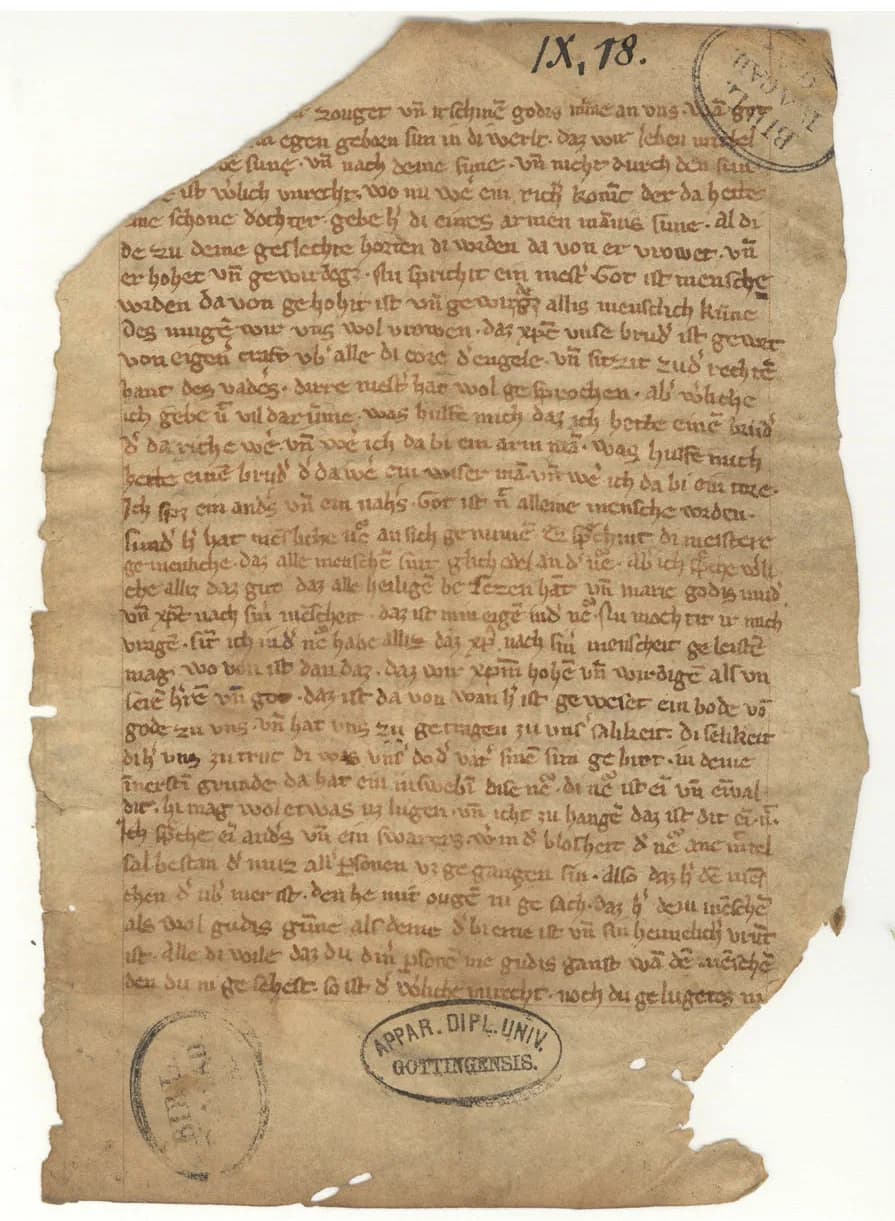 IX, 18.
zouget vn̄ irschinē godis mīne an uns. wā got
egen geborn sun in di werlt. daz wir leben mit
sune. vn̄ nach deme sune. vn̄ nicht durch den sun
ist w'lich vnrecht. wo nu we' ein rich' konīc der da hette
eine schone dochter. gebe h' di eines armen mānis sune. al di
de zu deme geslechte horten di worden da von er vrowet. vn̄
er hohet vn̄ gewirdeget. Nu sprichit ein mest' Got ist mensche
worden da von gehohit ist vn̄ gewirdeget allis menslich kūne
des mugē wir vns wol vrowen. daz xp̄c vnse brud' ist gewert
von eigen' craft vb' alle di core d' engele. vn̄ sitzit zu d' rechtē
hant des vade's. darre mest' hat wol gesprochen. ab' w'liche
ich gebe n̄ vil dar ūme. was hulfe mich daz ich hette einē brud'
d' da riche we' vn̄ we' ich da bi ein arm mā. was hulfe mich
hette einē brud' d' da we' ein wiser mā. vn̄ we' ich da bi ein tore.
Ich sp̄z ein and's vn̄ ein nah's. Got ist n̄ alleine mensche worden.
sund' h' hat mēsliche nͦe an sich genumē. Er sp̄chint di meistere
gemenliche. daz alle menschē sint glich edel an d' nͦe. Ab' ich sp̄che w'li
che alliz daz gut daz alle heiligen besezen hāt vn̄ marie godis mud'
vn̄ xp̄c nach sin' mēscheit. daz ist min eigē in d' nͦe. Nu mochtit ir mich
vragē. sīt ich in d' nͦe habe alliz daz xp̄c nach sin' menscheit geleistē
mag wo von ist dan daz. daz wir xp̄m hohē vn̄ wirdigē als vn
seiē h'rē vn̄ got. daz ist da von wan h' ist geweset ein bode vō
gode zu vns. vn̄ hat vns zu getragen zu uns' salikeit. di selikeit
di h' vns zu truc di was vns' do d' vat' sinē sun gebirt. in deme
īnerstē grunde da hat ein inswebī dise nͦe. di nͦe ist eī vn̄ eīval
dit. hi mag wol etwas uz lugen. vn̄ icht zu hangē daz ist dit eī n̄.
Ich sp̄che eī and's vn̄ ein swarers. w' in d' blosheit d' nͦe ane mītel
sal bestan d' muz all' p̄sonen vz gegangen sin. also daz h' dē mēs
chen d' ub' mer ist. den he mit ougē ni gesach. daz h' dem mēschē
als wol gudis gūne als deme d' bi eme ist vn̄ sin heimelich' vrūt
ist. Alle di wile daz du din' p̄sonē me gudis ganst wā dē mēschē
den du ni gesehest. so ist d' w'liche vnrecht. noch du gelugetes ni
APPAR. DIPL. UNIV.
GOTTINGENSIS.